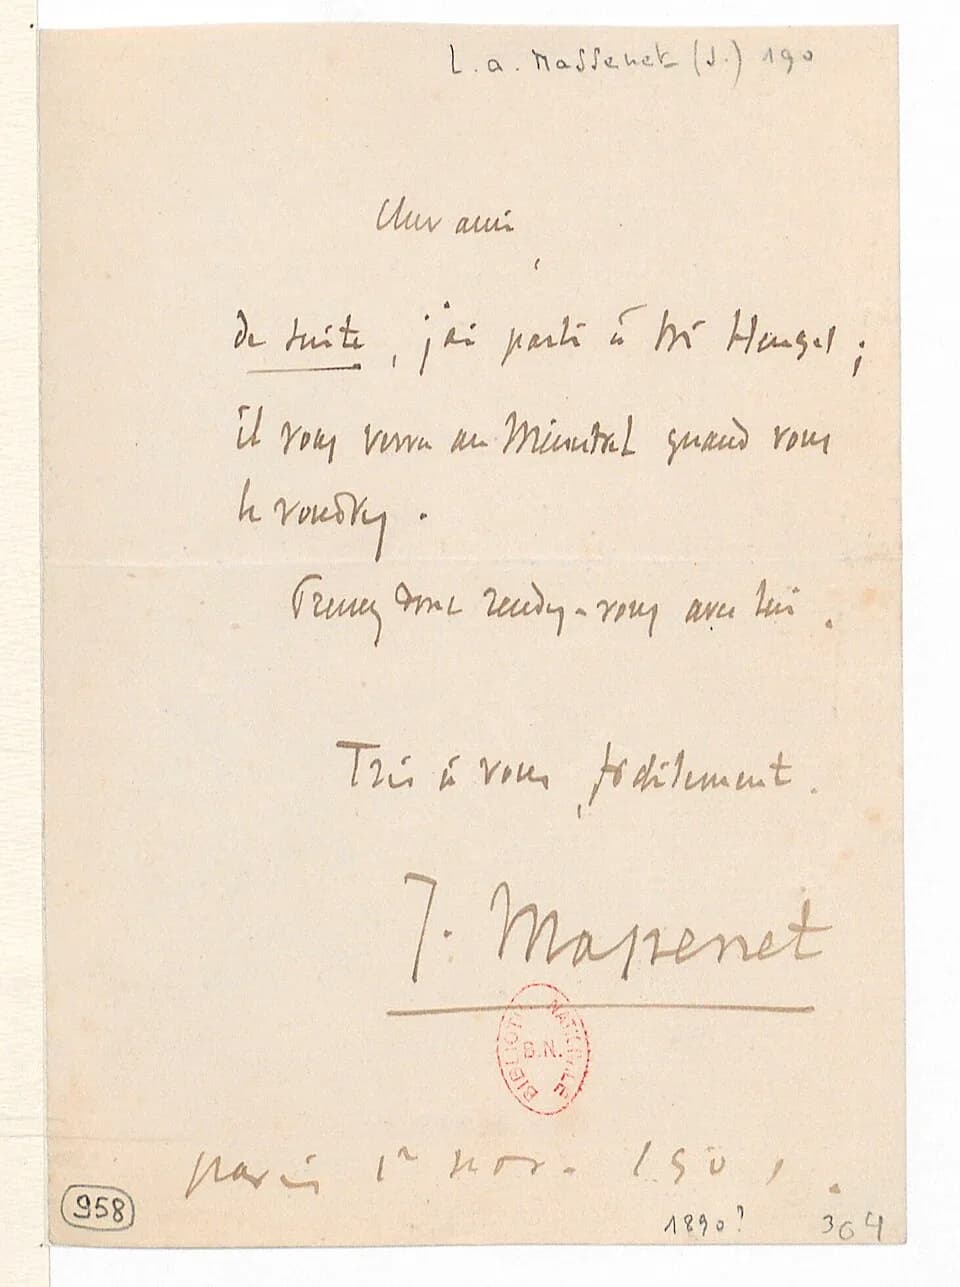 L. a. Massenet (J.) 190
Cher ami,
de suite, j'ai parlé à Mr Heugel ;
il vous verra au Ménestrel quand vous
le voudrez.
Prenez donc rendez-vous avec lui.
Très à vous, fidèlement.
J. Massenet
BIBLIOT NATIONALE
B.N.
paris 1er nov. 190
958
1890?
364